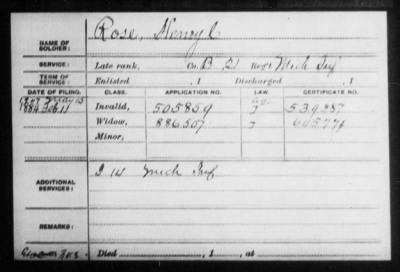 NAME OF SOLDIER: Rose, Henry C
SERVICE: Late rank, Co. B 21 Reg't Mich Inf
TERM OF SERVICE: Enlisted , 1 Discharged , 1
DATE OF FILING. CLASS. APPLICATION NO. LAW. CERTIFICATE NO.
Invalid, 505859 539
1884 Feb 11 Widow, 886507
Minor,
ADDITIONAL SERVICES: I 14 Mich Inf
REMARKS:
Died , 1 , at